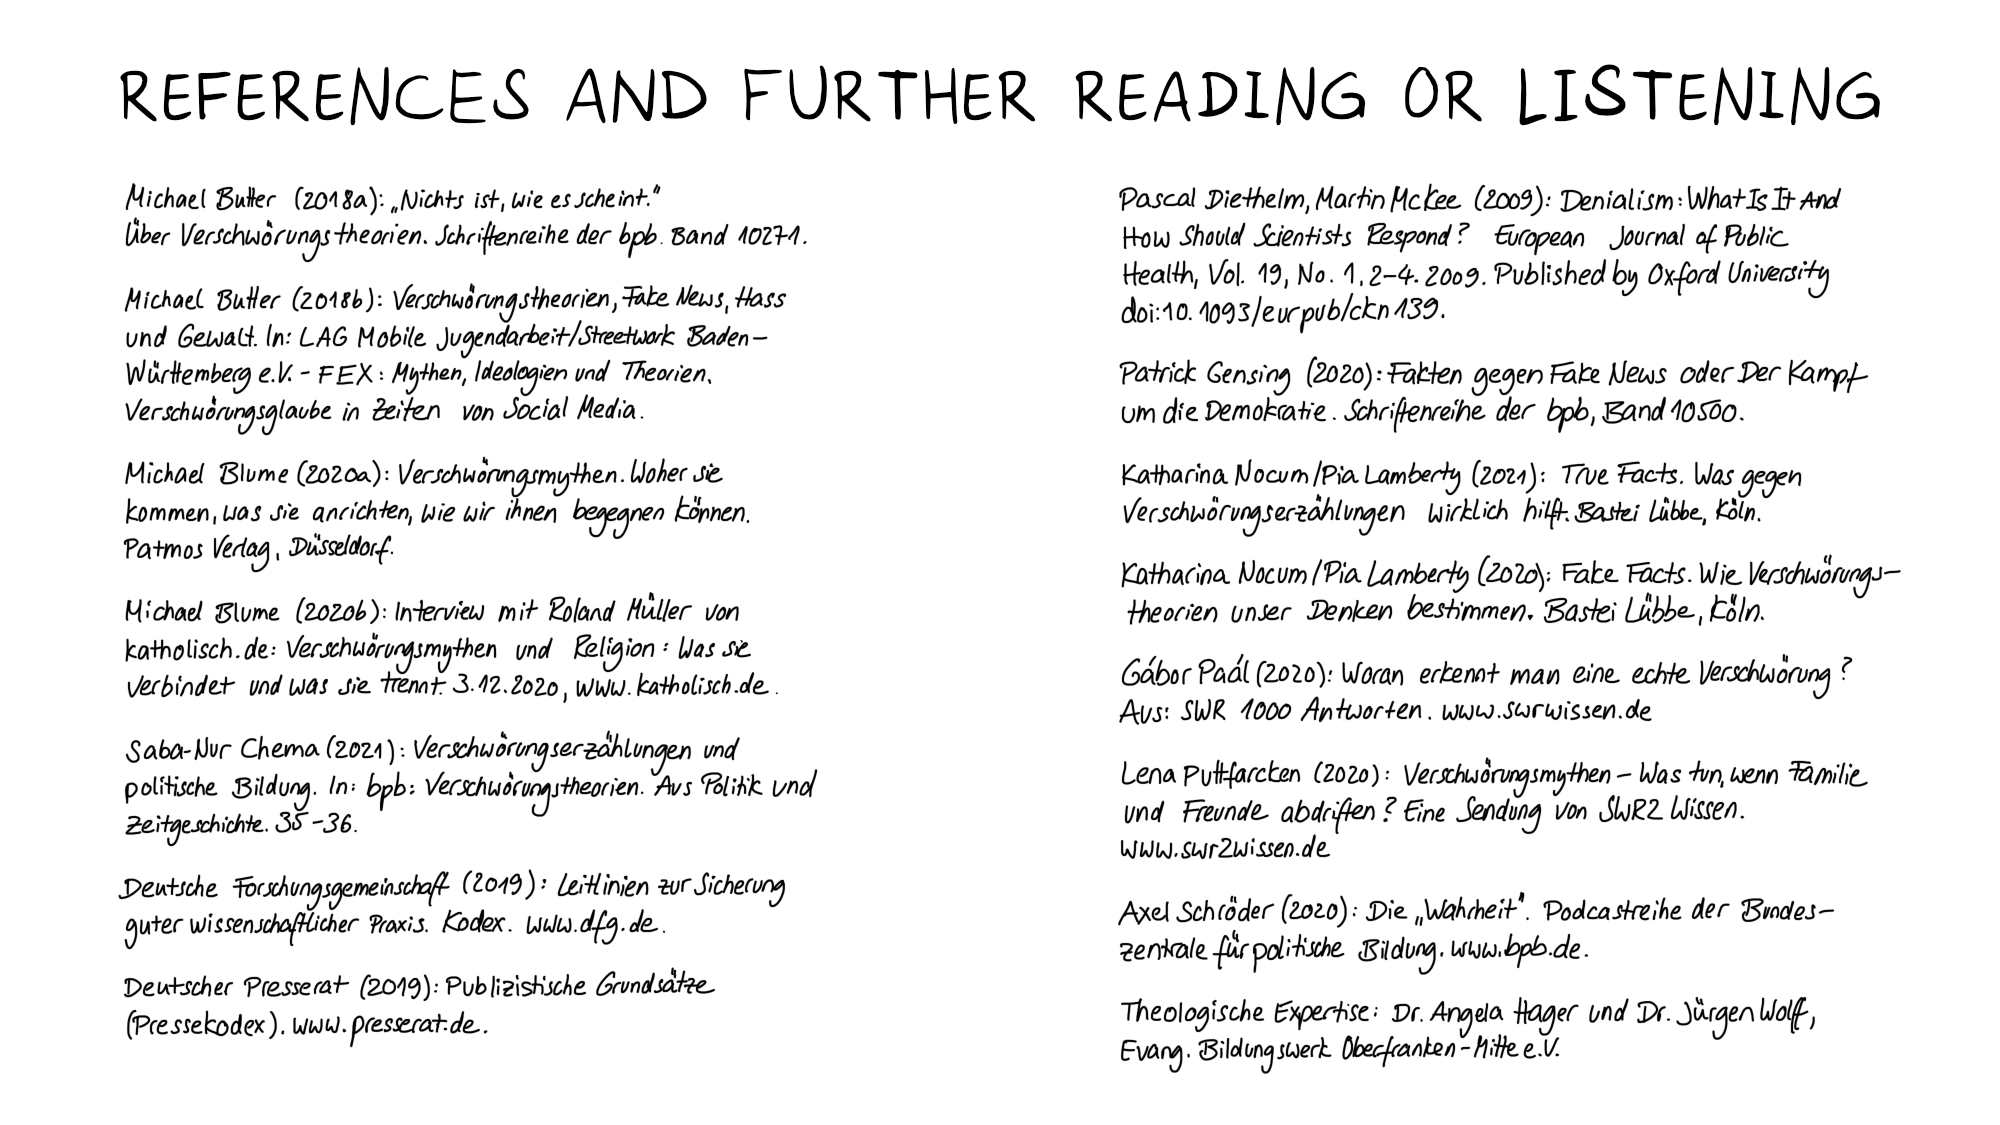 REFERENCES AND FURTHER READING OR LISTENING
Michael Butter (2018a): „Nichts ist, wie es scheint."
Über Verschwörungstheorien. Schriftenreihe der bpb. Band 10271.
Michael Butter (2018b): Verschwörungstheorien, Fake News, Hass
und Gewalt. In: LAG Mobile Jugendarbeit/Streetwork Baden-
Württemberg e.V. - FEX: Mythen, Ideologien und Theorien.
Verschwörungsglaube in Zeiten von Social Media.
Michael Blume (2020a): Verschwörungsmythen. Woher sie
kommen, was sie anrichten, wie wir ihnen begegnen können.
Patmos Verlag, Düsseldorf.
Michael Blume (2020b): Interview mit Roland Müller von
katholisch.de: Verschwörungsmythen und Religion: Was sie
verbindet und was sie trennt. 3.12.2020, www.katholisch.de.
Saba-Nur Chema (2021): Verschwörungserzählungen und
politische Bildung. In: bpb: Verschwörungstheorien. Aus Politik und
Zeitgeschichte. 35-36.
Deutsche Forschungsgemeinschaft (2019): Leitlinien zur Sicherung
guter wissenschaftlicher Praxis. Kodex. www.dfg.de.
Deutscher Presserat (2019): Publizistische Grundsätze
(Pressekodex). www.presserat.de.
Pascal Diethelm, Martin McKee (2009): Denialism: What Is It And
How Should Scientists Respond? European Journal of Public
Health, Vol. 19, No. 1, 2-4. 2009. Published by Oxford University
doi:10.1093/eurpub/ckn139.
Patrick Gensing (2020): Fakten gegen Fake News oder Der Kampf
um die Demokratie. Schriftenreihe der bpb, Band 10500.
Katharina Nocum/Pia Lamberty (2021): True Facts. Was gegen
Verschwörungserzählungen wirklich hilft. Bastei Lübbe, Köln.
Katharina Nocum/Pia Lamberty (2020): Fake Facts. Wie Verschwörungs-
theorien unser Denken bestimmen. Bastei Lübbe, Köln.
Gábor Paál (2020): Woran erkennt man eine echte Verschwörung?
Aus: SWR 1000 Antworten. www.swrwissen.de
Lena Puttfarcken (2020): Verschwörungsmythen - Was tun, wenn Familie
und Freunde abdriften? Eine Sendung von SWR2 Wissen.
www.swr2wissen.de
Axel Schröder (2020): Die „Wahrheit". Podcastreihe der Bundes-
zentrale für politische Bildung. www.bpb.de.
Theologische Expertise: Dr. Angela Hager und Dr. Jürgen Wolff,
Evang. Bildungswerk Oberfranken-Mitte e.V.